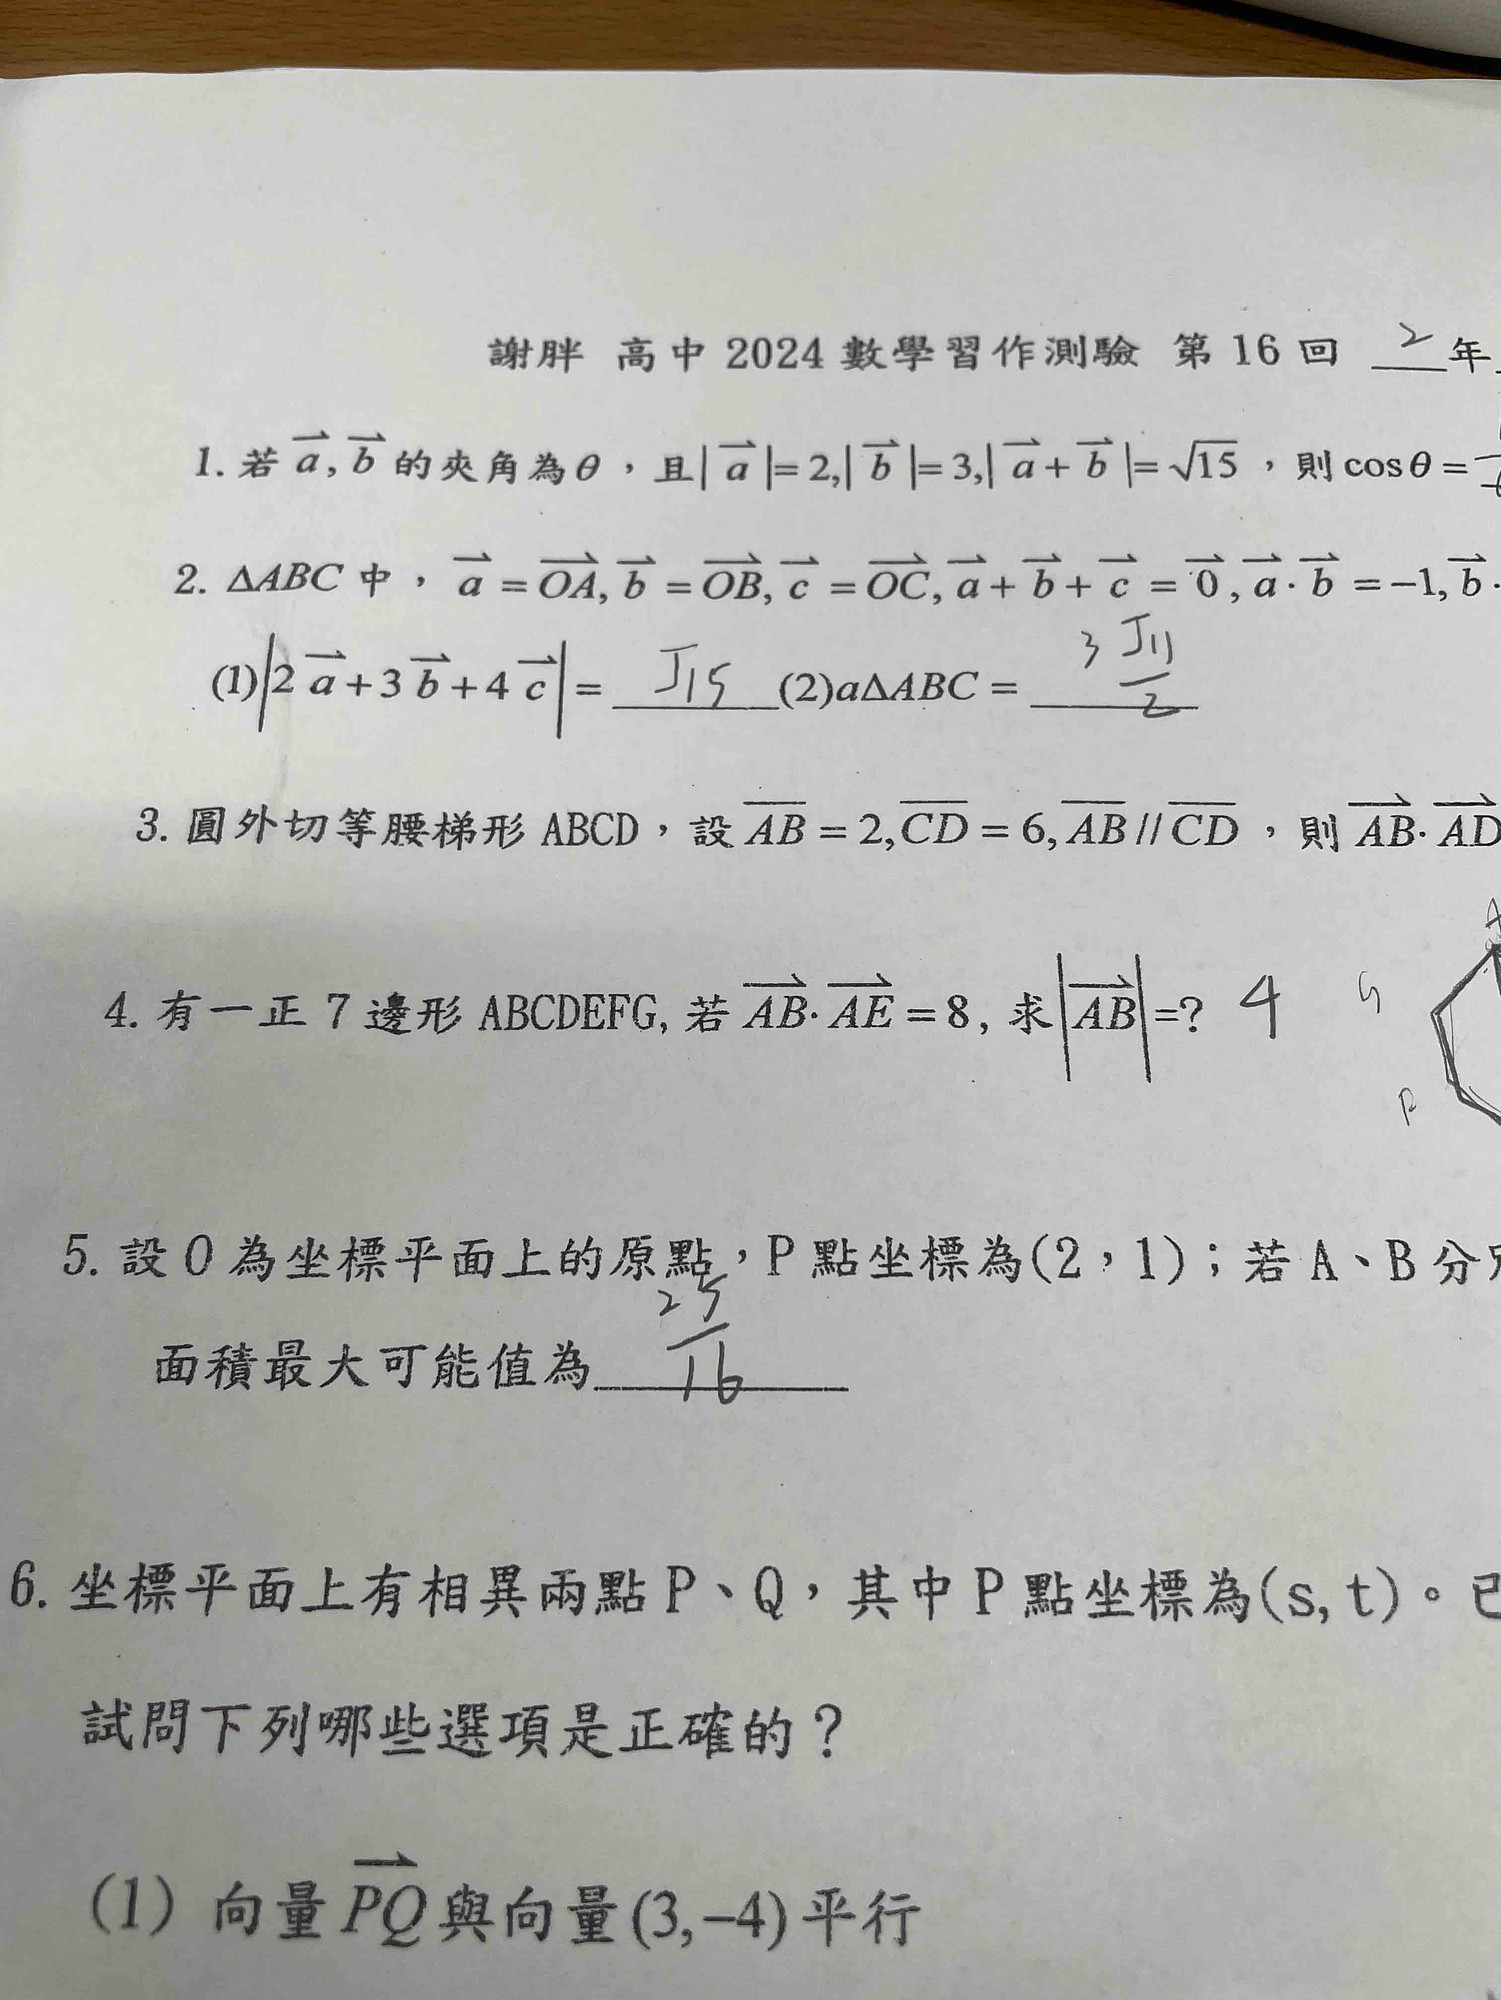 謝胖 高中 2024 數學習作測驗 第 16 回 2 年
1. 若 a, b 的夾角為θ，且| a |= 2,| b |= 3,| a + b |= √15，則 cosθ =
2. ΔABC 中， a = OA, b = OB, c = OC, a + b + c = 0, a · b = −1, b ·
(1)|2 a + 3 b + 4 c| = √15 (2)aΔABC = 3√11/2
3. 圓外切等腰梯形 ABCD，設 AB = 2, CD = 6, AB // CD，則 AB · AD
A
4. 有一正 7 邊形 ABCDEFG, 若 AB · AE = 8, 求 |AB| =? 4 G
5. 設 O 為坐標平面上的原點，P 點坐標為(2，1)；若 A、B 分
面積最大可能值為 25/16
6. 坐標平面上有相異兩點 P、Q，其中 P 點坐標為(s, t)。已
試問下列哪些選項是正確的？
(1) 向量 PQ 與向量 (3, −4) 平行